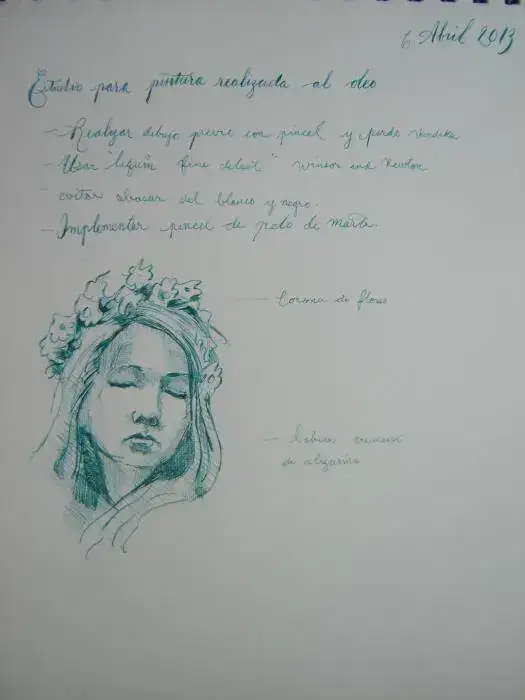 6 Abril 2013
Estudio para pintura realizada al oleo
- Realizar dibujo previo con pincel y pardo Vandike
- Usar "liquin fine detail" Winsor and Newton
- evitar abusar del blanco y negro.
- Implementar pincel de pelo de Marta.
— Corona de flores
— labios carmesi
de alizarina